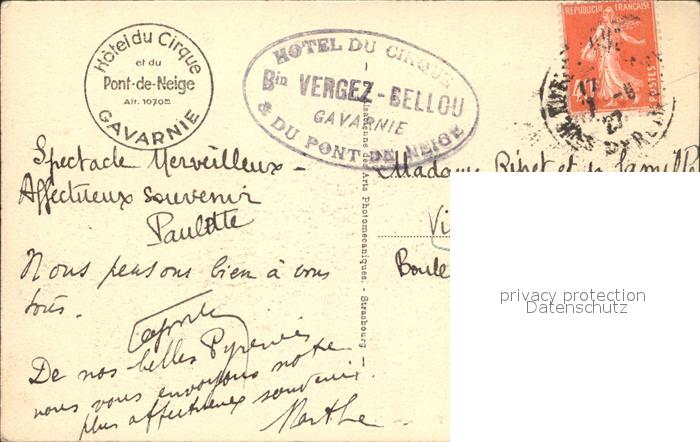 Hôtel du Cirque
et du
Pont-de-Neige
Alt. 1070m
GAVARNIE
HOTEL DU CIRQUE
Bin VERGEZ-BELLOU
GAVARNIE
& DU PONT DE NEIGE
REPUBLIQUE FRANCAISE
POSTES
17
27
Spectacle Merveilleux -
Affectueux souvenir
Paulette
Nous pensons bien à vous
tous.
De nos belles Pyrénées
nous vous envoyons notre
plus affectueux souvenir.
Marthe
des Arts Photomécaniques. - Strasbourg
Madame et sa famille
Vi
Boule
privacy protection
Datenschutz